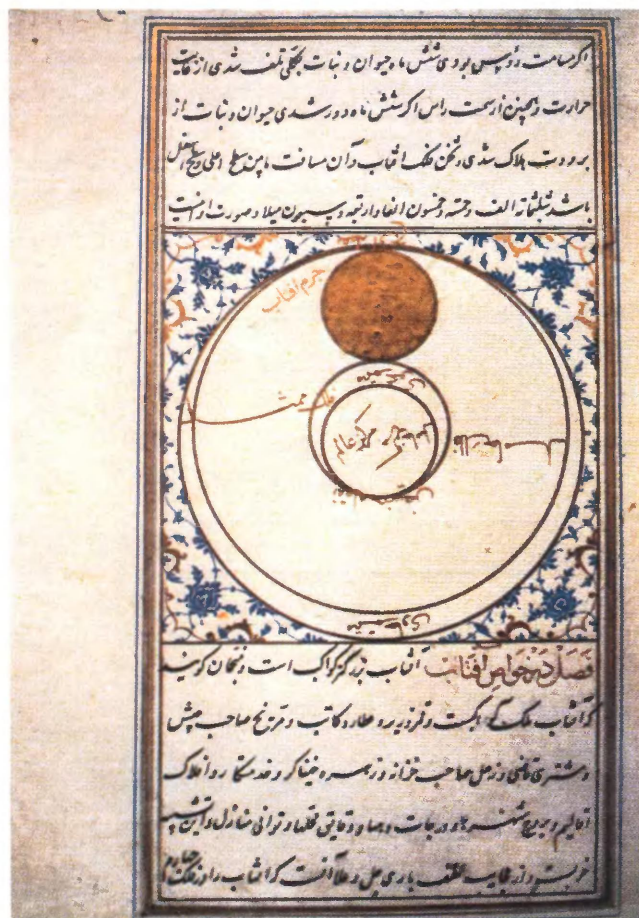 اگر مسامت رؤس بودی شش ماه حیوان و نبات بکلی تلف شدی از غایت
حرارت و همچنین از سمت راس اگر شش ماه دور شدی حیوان و نبات از
برودت هلاک شدی و ثخن فلک افتاب و آن مسافت مابین سطح اعلی و سطح اسفل
باشد ثلثمائه الف و خمسه و خمسون الفا و اربعه و سبعون میلا و صورت و
جرم افتاب
فلک ممثل
فصل در خواص افتاب آفتاب بزرگتر کواکب است و منجمان گویند
که آفتاب ملک کواکبست و قمر وزیر و عطارد کاتب و مریخ صاحب جیش
و مشتری قاضی و زحل صاحب خزانه و زهره خنیاگر و خدمتکار و افلاک
اقالیم و بروج شهرها و درجات و دقایق و ثوانی منازل و این
خوبست و از غایت لطف باری جل و علا آنست که آفتاب را در فلک چهارم